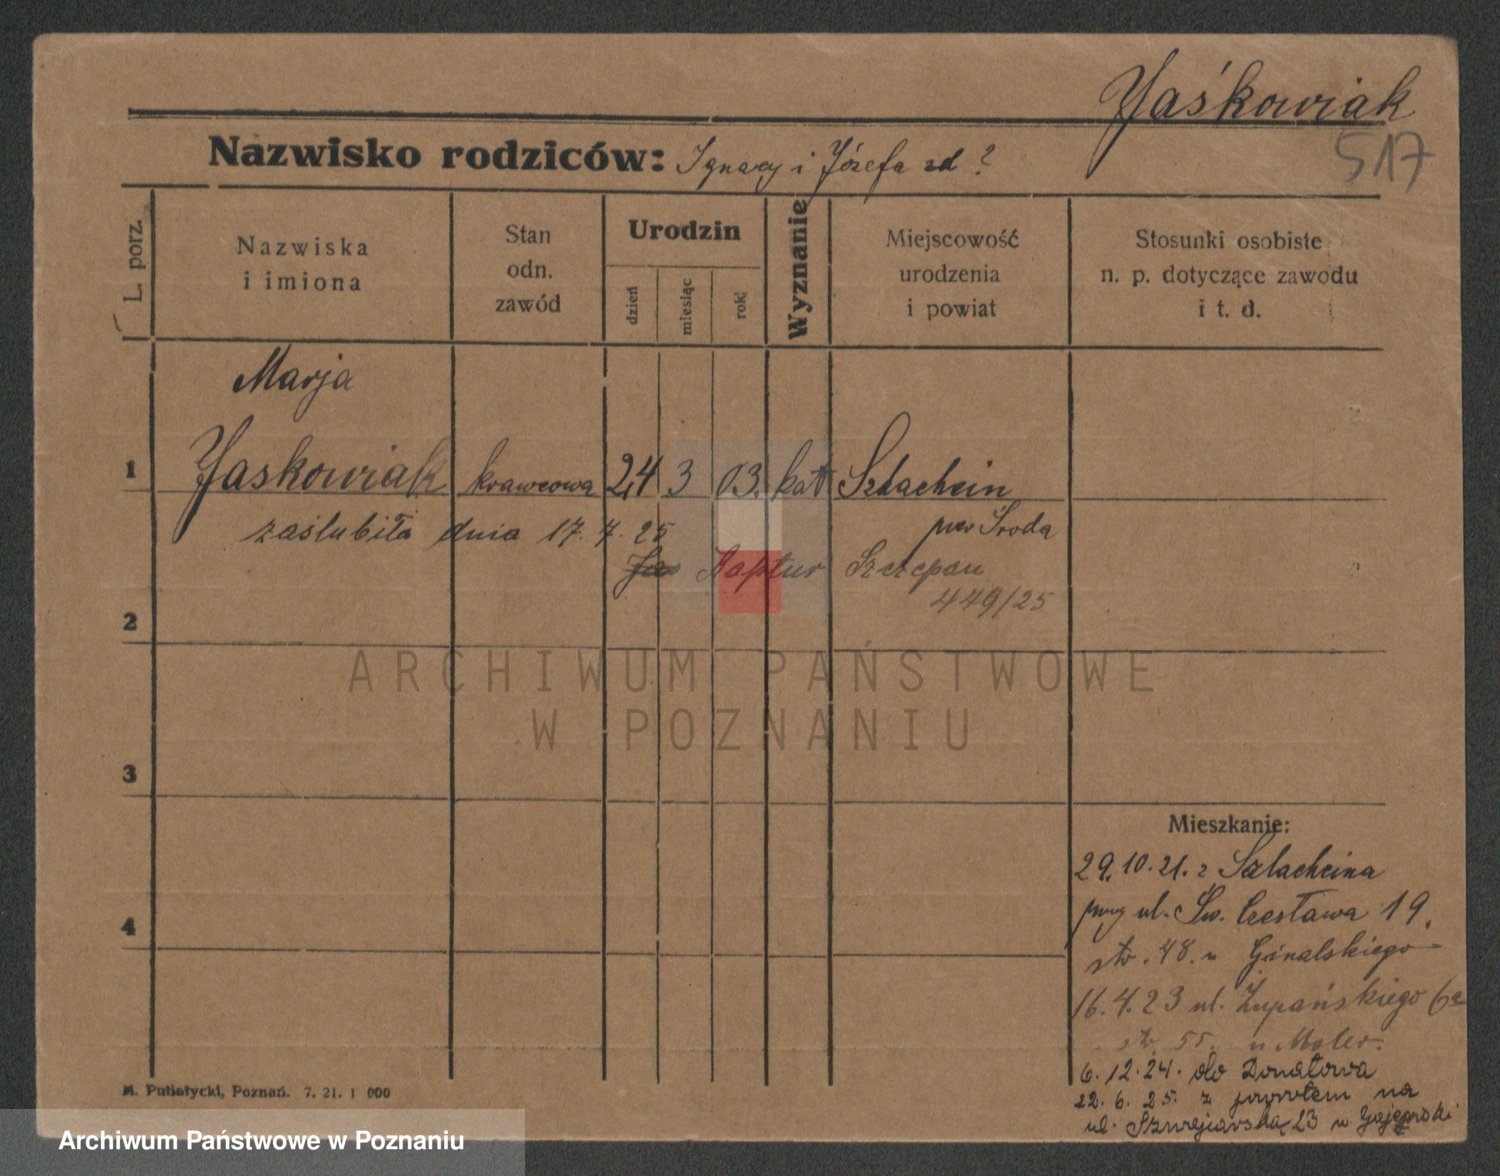 Jaśkowiak
517
Nazwisko rodziców: Ignacy i Józefa zd ?
L. porz.
Nazwiska
i imiona
Stan
odn.
zawód
Urodzin
dzień
miesiąc
rok
Wyznanie
Miejscowość
urodzenia
i powiat
Stosunki osobiste
n. p. dotyczące zawodu
i t. d.
Marja
1 Jaskowiak krawcowa 24 3 03. kat Szlachcin
zaślubiła dnia 17. 7. 25 pow Środa
Kaptur Szczepan
449/25
2
ARCHIWUM PAŃSTWOWE
W POZNANIU
3
4
Mieszkanie:
29.10.21. z Szlachcina
przy ul. Św. Czesława 19.
str. 48. u Ginalskiego
16.4.23 ul. Żupańskiego 6a
str. 55. u Moler.
6.12.24. do Donatowa
22.6.25. z powrotem na
ul. 23 u
M. Putiatycki, Poznań. 7. 21. 1 000
Archiwum Państwowe w Poznaniu